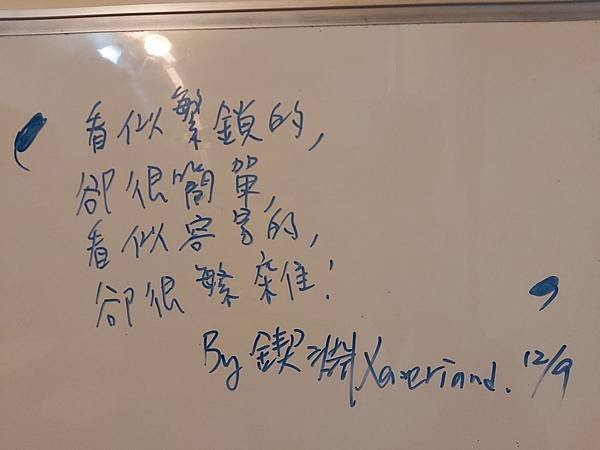 看似繁鎖的,
卻很簡單,
看似容易的,
卻很繁雜!
By 鍥淵 Xaveriand. 12/9